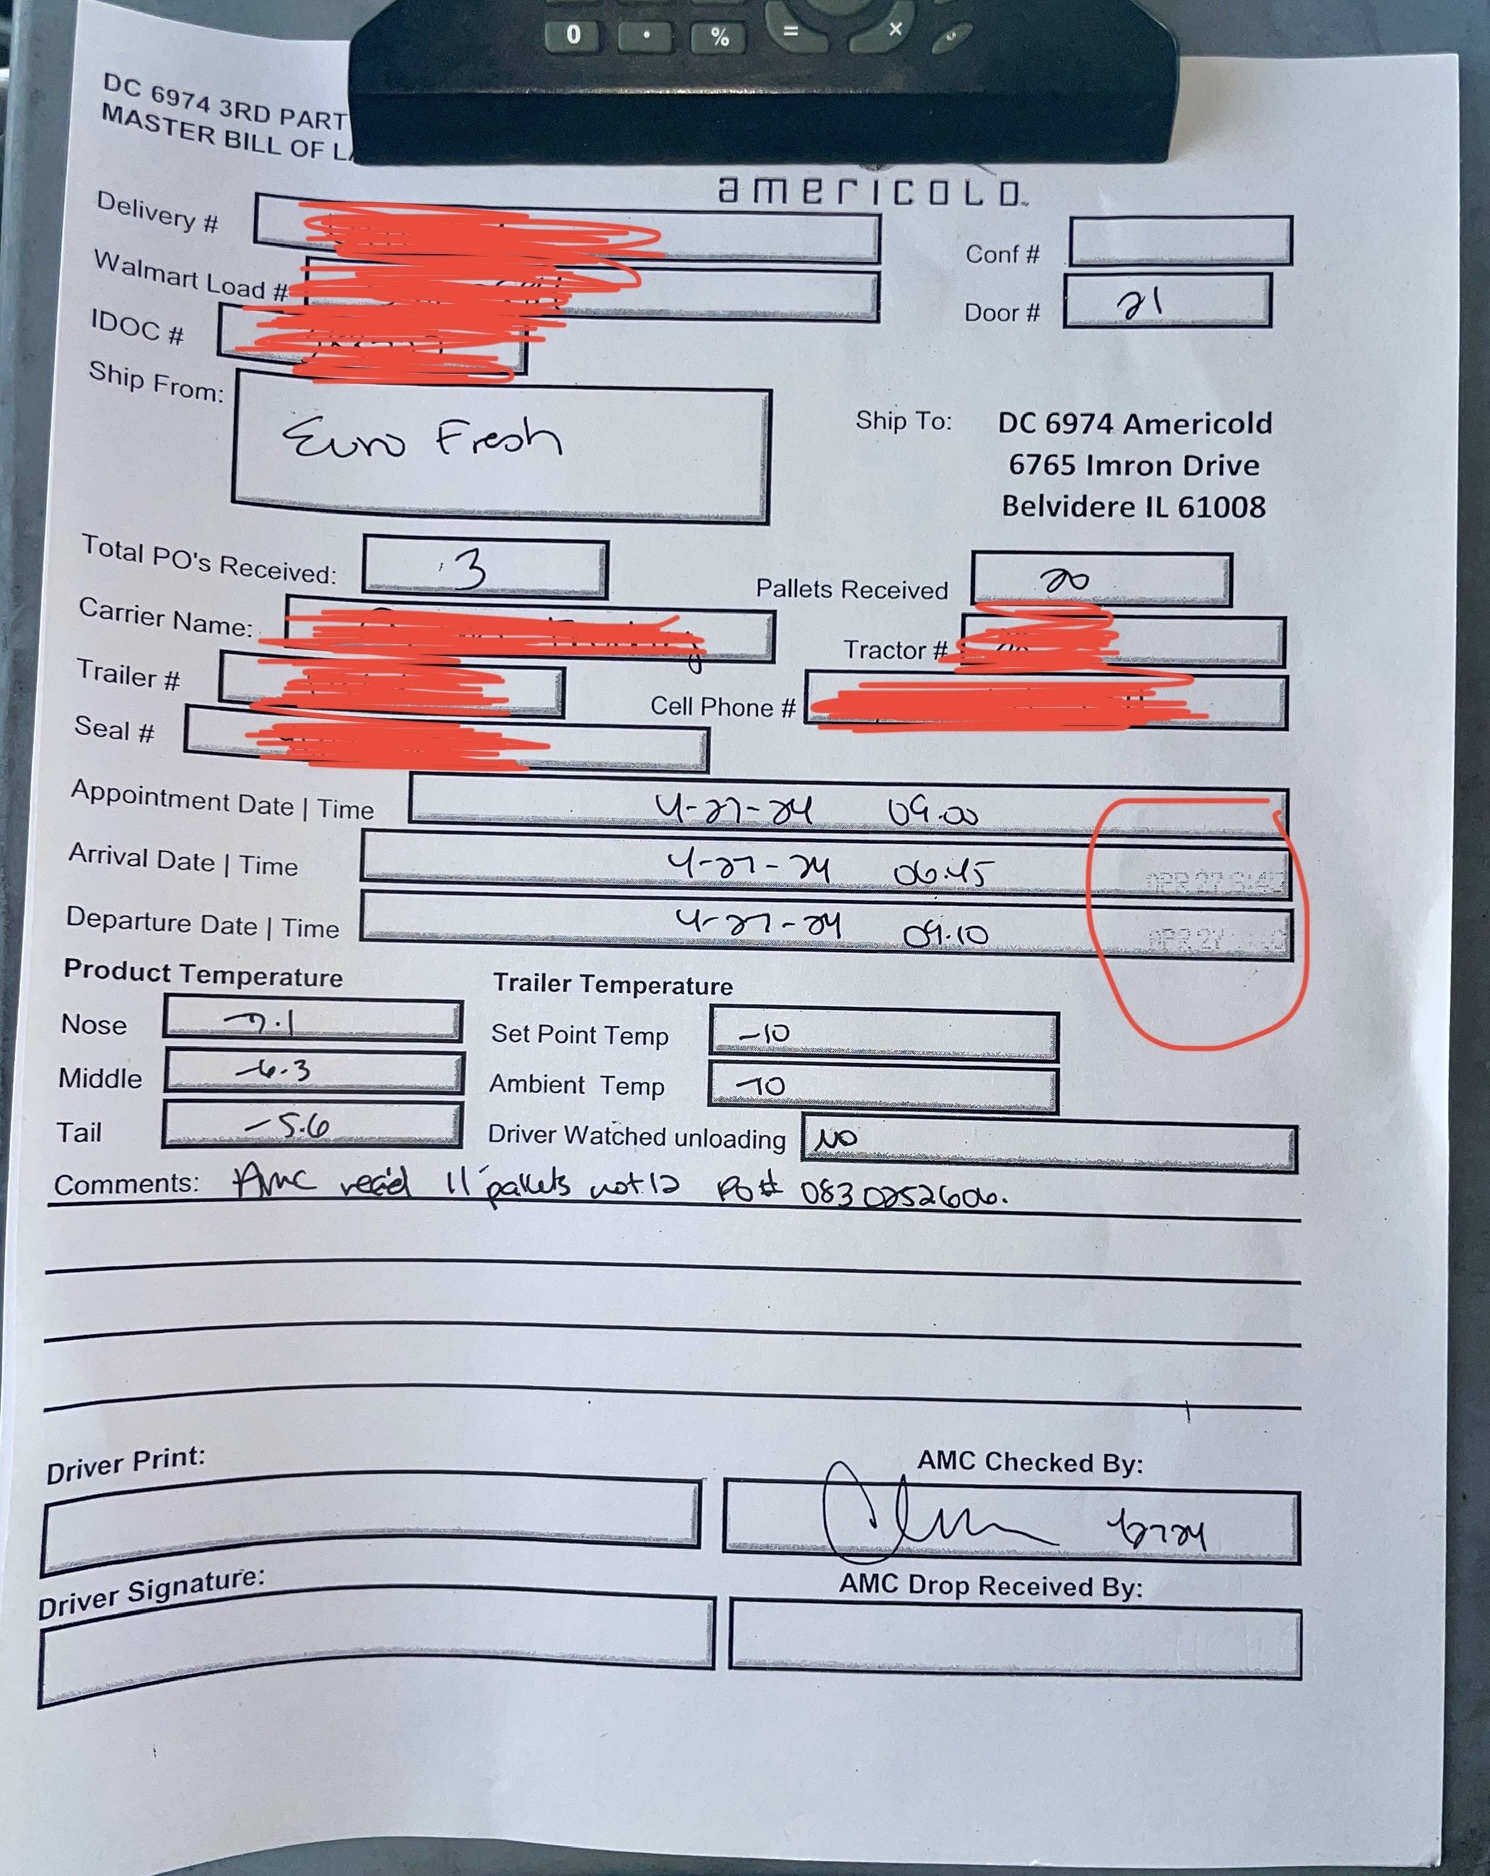 0 . % = ×
DC 6974 3RD PART
MASTER BILL OF
americold
Delivery #
Conf #
Walmart Load #
Door # 21
IDOC #
Ship From: Euro Fresh
Ship To: DC 6974 Americold
6765 Imron Drive
Belvidere IL 61008
Total PO's Received: 3
Pallets Received 20
Carrier Name:
Tractor #
Trailer #
Cell Phone #
Seal #
Appointment Date | Time 4-27-24 09.00
Arrival Date | Time 4-27-24 06.45 APR 27
Departure Date | Time 4-27-24 09.10 APR 27
Product Temperature
Trailer Temperature
Nose -7.1
Set Point Temp -10
Middle -6.3
Ambient Temp -10
Tail -5.6
Driver Watched unloading NO
Comments: AMC rec'd 11 pallets not 12 PO# 0830252606.
Driver Print:
AMC Checked By:
Driver Signature:
AMC Drop Received By: